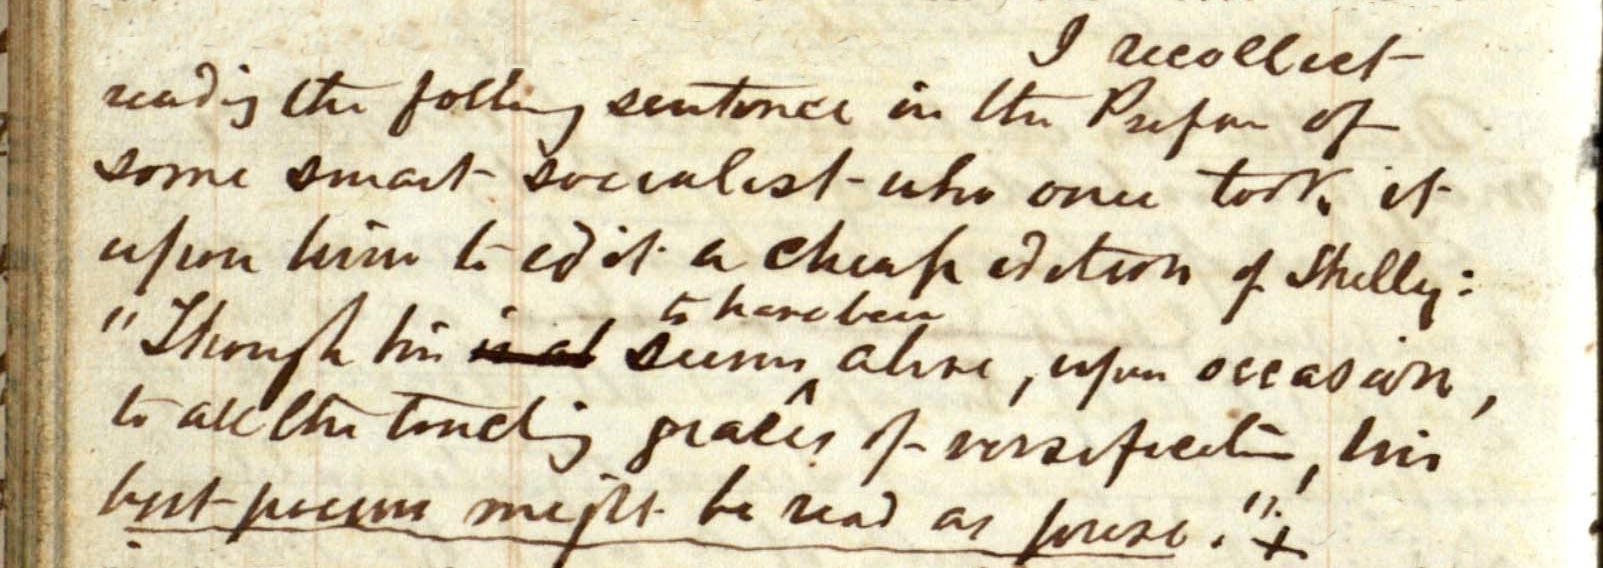 I recollect
reading the follwing sentence in the Preface of
some smart socialist who once took it
upon him to edit a cheap edition of Shelly:
to have been
"Though him is al seems alive, upon occasion,
to all the touching graces of versification, his
best poems might be read as prose." +